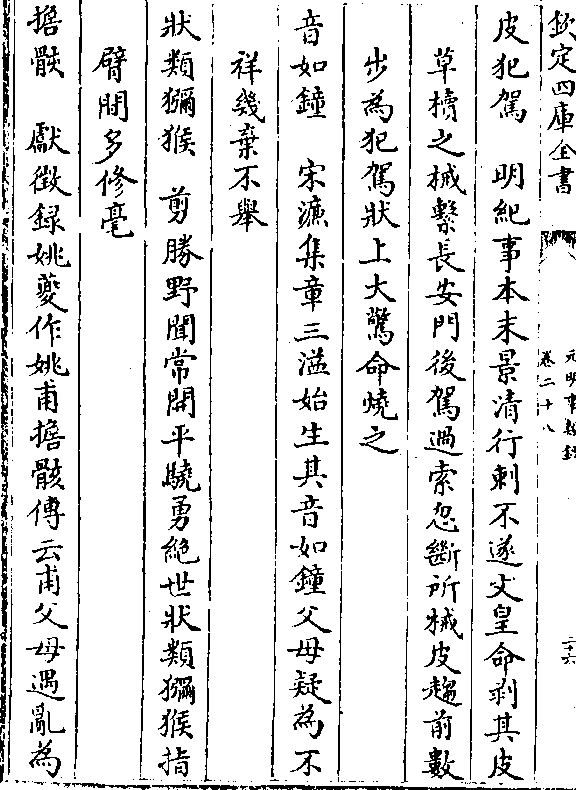 欽定四庫全書
元明事類鈔
卷二十八
二十六
皮犯駕　明紀事本末景清行刺不遂丈皇命剥其皮
草櫝之械繫長安門後駕過索忽斷所械皮趨前數
步為犯駕狀上大驚命燒之
音如鐘　宋濂集章三溢始生其音如鐘父母疑為不
祥幾棄不舉
狀類獼猴　剪勝野聞常開平驍勇絕世狀類獼猴指
臂間多修毫
擔骸　獻徵録姚夔作姚甫擔骸傳云甫父母遇亂為